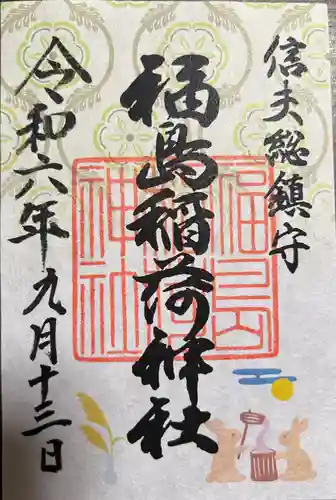 信夫総鎮守
福島稲荷神社
令和六年九月十三日
福島
稲荷
神社